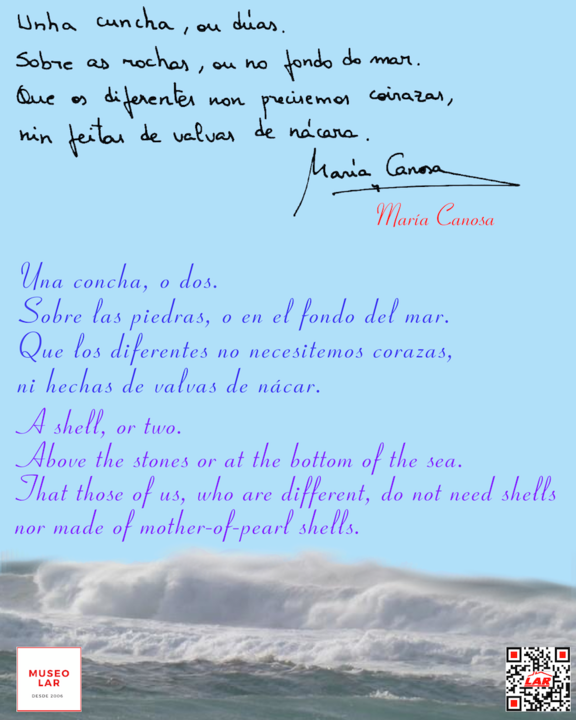 Unha cuncha, ou dúas.
Sobre as rochas, ou no fondo do mar.
Que os diferentes non precisemos coirazas,
nin feitas de valvas de nácara.
María Canosa
María Canosa
Una concha, o dos.
Sobre las piedras, o en el fondo del mar.
Que los diferentes no necesitemos corazas,
ni hechas de valvas de nácar.
A shell, or two.
Above the stones or at the bottom of the sea.
That those of us, who are different, do not need shells
nor made of mother-of-pearl shells.
MUSEO
LAR
DESDE 2006
LAR